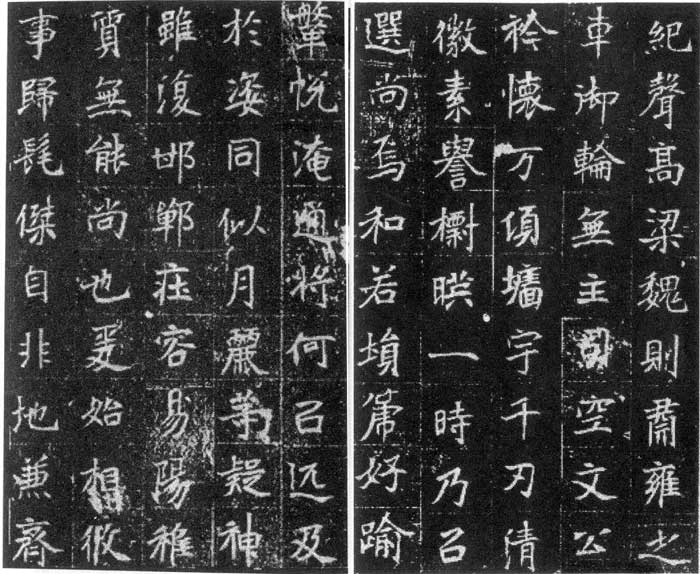 紀聲髙梁魏則肅雍之
車御輪無主司空文公
衿懷万傾墻宇千刃清
徽素譽欝映一時乃㠯
選尚焉和若塤箎好踰
鞶帨淹通將何㠯远及
於姿同似月麗茀疑神
雖復邯鄲疰容易陽稚
質無能尚也爰始相攸
事歸髦傑自非地兼齊